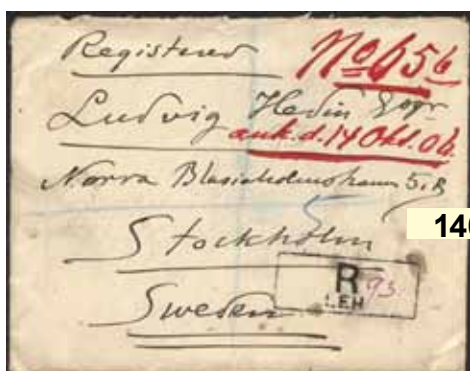 Registered
No 656
Ludvig Hedin Esqr
ank. d. 14 Okt. 06.
Norra Blasieholmshamn 5.B
Stockholm
140
Sweden
R 93.
LEH